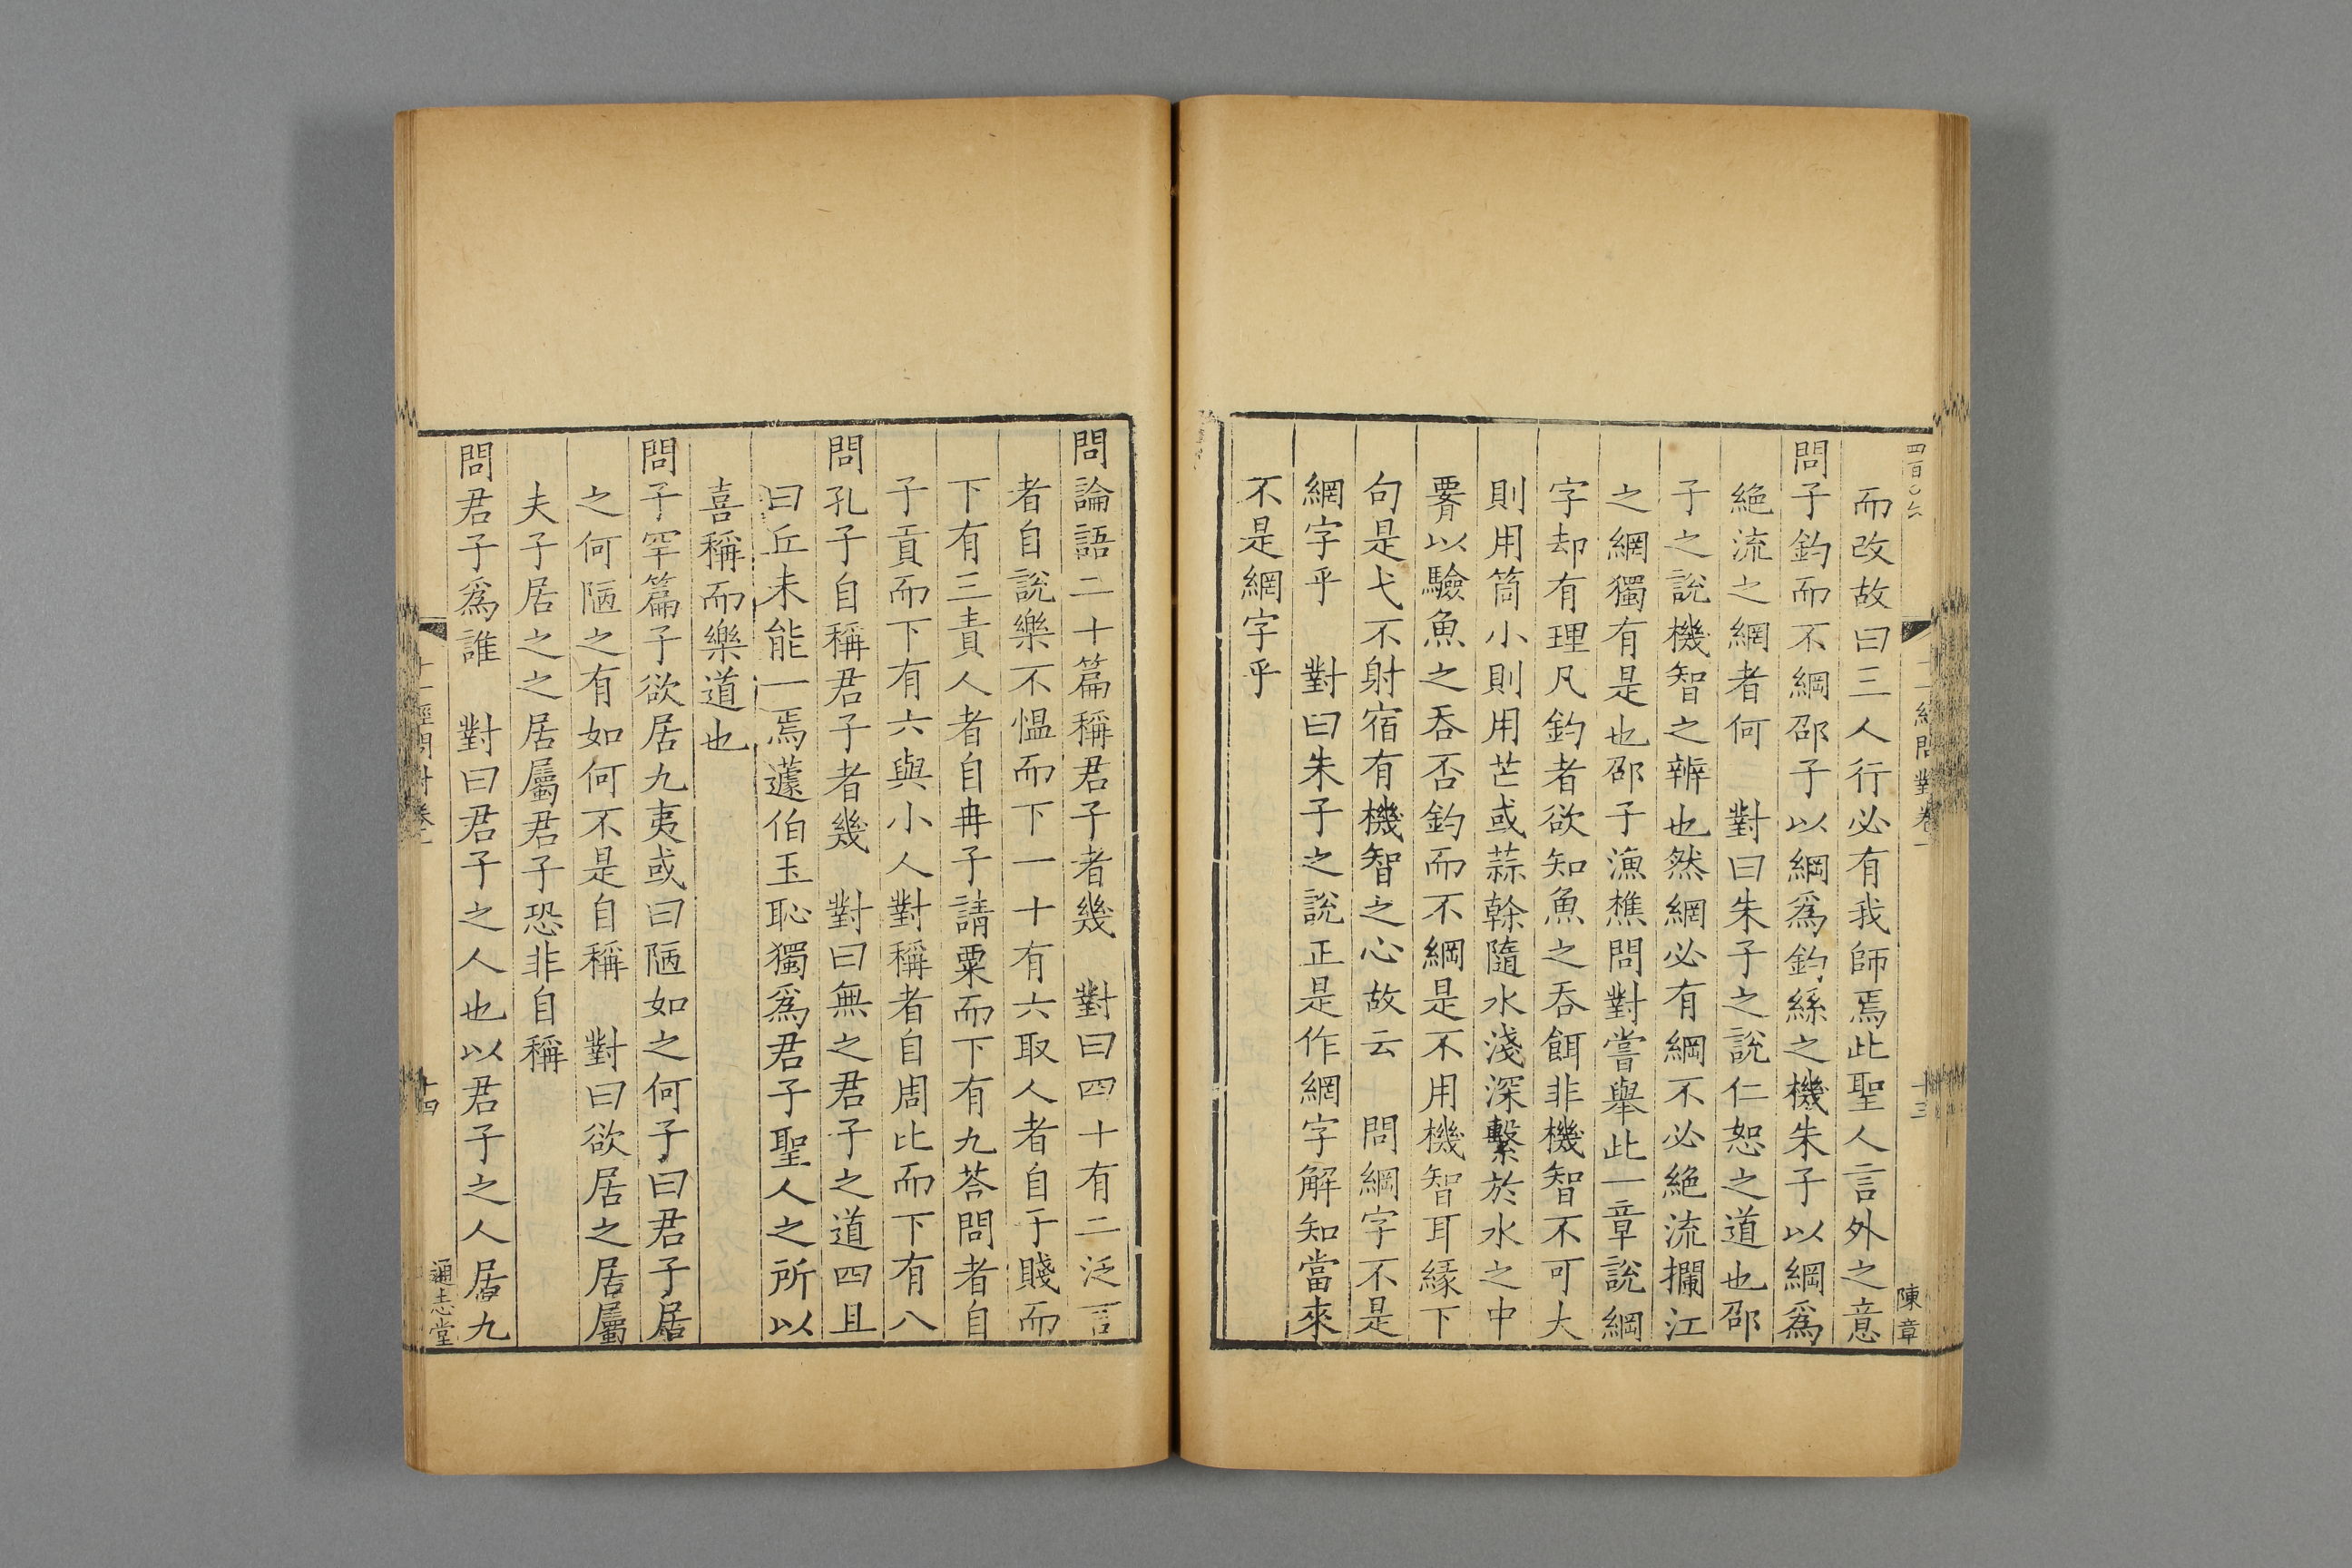 四百〇六
十一經問對卷一
十三
陳章
而改故曰三人行必有我師焉此聖人言外之意
問子釣而不綱邵子以綱爲釣絲之機朱子以綱爲
絕流之網者何　對曰朱子之說仁恕之道也邵
子之說機智之辨也然網必有綱不必絕流攔江
之網獨有是也邵子漁樵問對嘗舉此一章說綱
字却有理凡釣者欲知魚之吞餌非機智不可大
則用筒小則用芒或蒜榦隨水淺深繫於水之中
以驗魚之吞否釣而不綱是不用機智耳緣下
句是弋不射宿有機智之心故云　問綱字不是
網字乎　對曰朱子之說正是作網字解知當來
不是網字乎
問論語二十篇稱君子者幾　對曰四十有二泛言
者自說樂不慍而下一十有六取人者自于賤而
下有三責人者自冉子請粟而下有九荅問者自
子貢而下有六與小人對稱者自周比而下有八
問孔子自稱君子者幾　對曰無之君子之道四且
曰丘未能一焉蘧伯玉恥獨爲君子聖人之所以
喜稱而樂道也
問子罕篇子欲居九夷或曰陋如之何子曰君子居
之何陋之有如何不是自稱　對曰欲居之居屬
夫子居之之居屬君子恐非自稱
問君子爲誰　對曰君子之人也以君子之人居九
十一經問對卷一
十四
通志堂